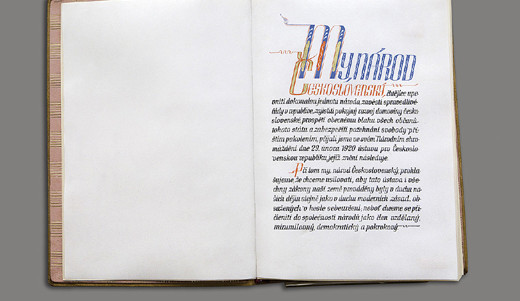 My, národ
Československý, chtějíce upev-
niti dokonalou jednotu národa, zavésti spravedlivé
řády v republice, zajistiti pokojný rozvoj domoviny česko-
slovenské, prospěti obecnému blahu všech občanů
tohoto státu a zabezpečiti požehnání svobody pří-
štím pokolením, přijali jsme ve svém Národním shro-
máždění dne 29. února 1920 ústavu pro Českoslo-
venskou republiku, jejíž znění následuje.
Při tom my, národ Československý, prohla-
šujeme, že chceme usilovati, aby tato ústava i vše-
chny zákony naší země prováděny byly v duchu na-
šich dějin stejně jako v duchu moderních zásad, ob-
sažených v hesle sebeurčení, neboť chceme se při-
členiti do společnosti národů jako člen vzdělaný,
mírumilovný, demokratický a pokrokový